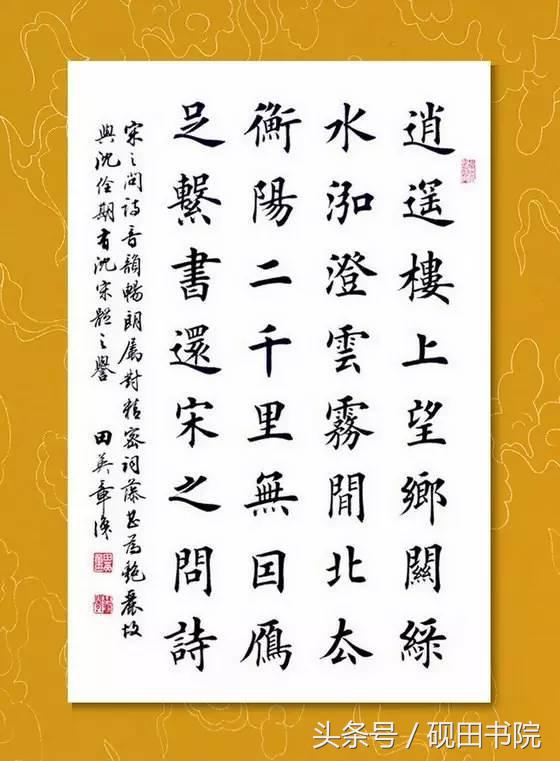 逍遥樓上望鄉關綠
水泓澄雲霧間北去
衡陽二千里無因鴈
足繫書還宋之問詩
宋之问诗音韻暢朗属對精密词藻甚为艷麗故
與沈佺期有沈宋體之譽 田英章
头条号 / 砚田书院